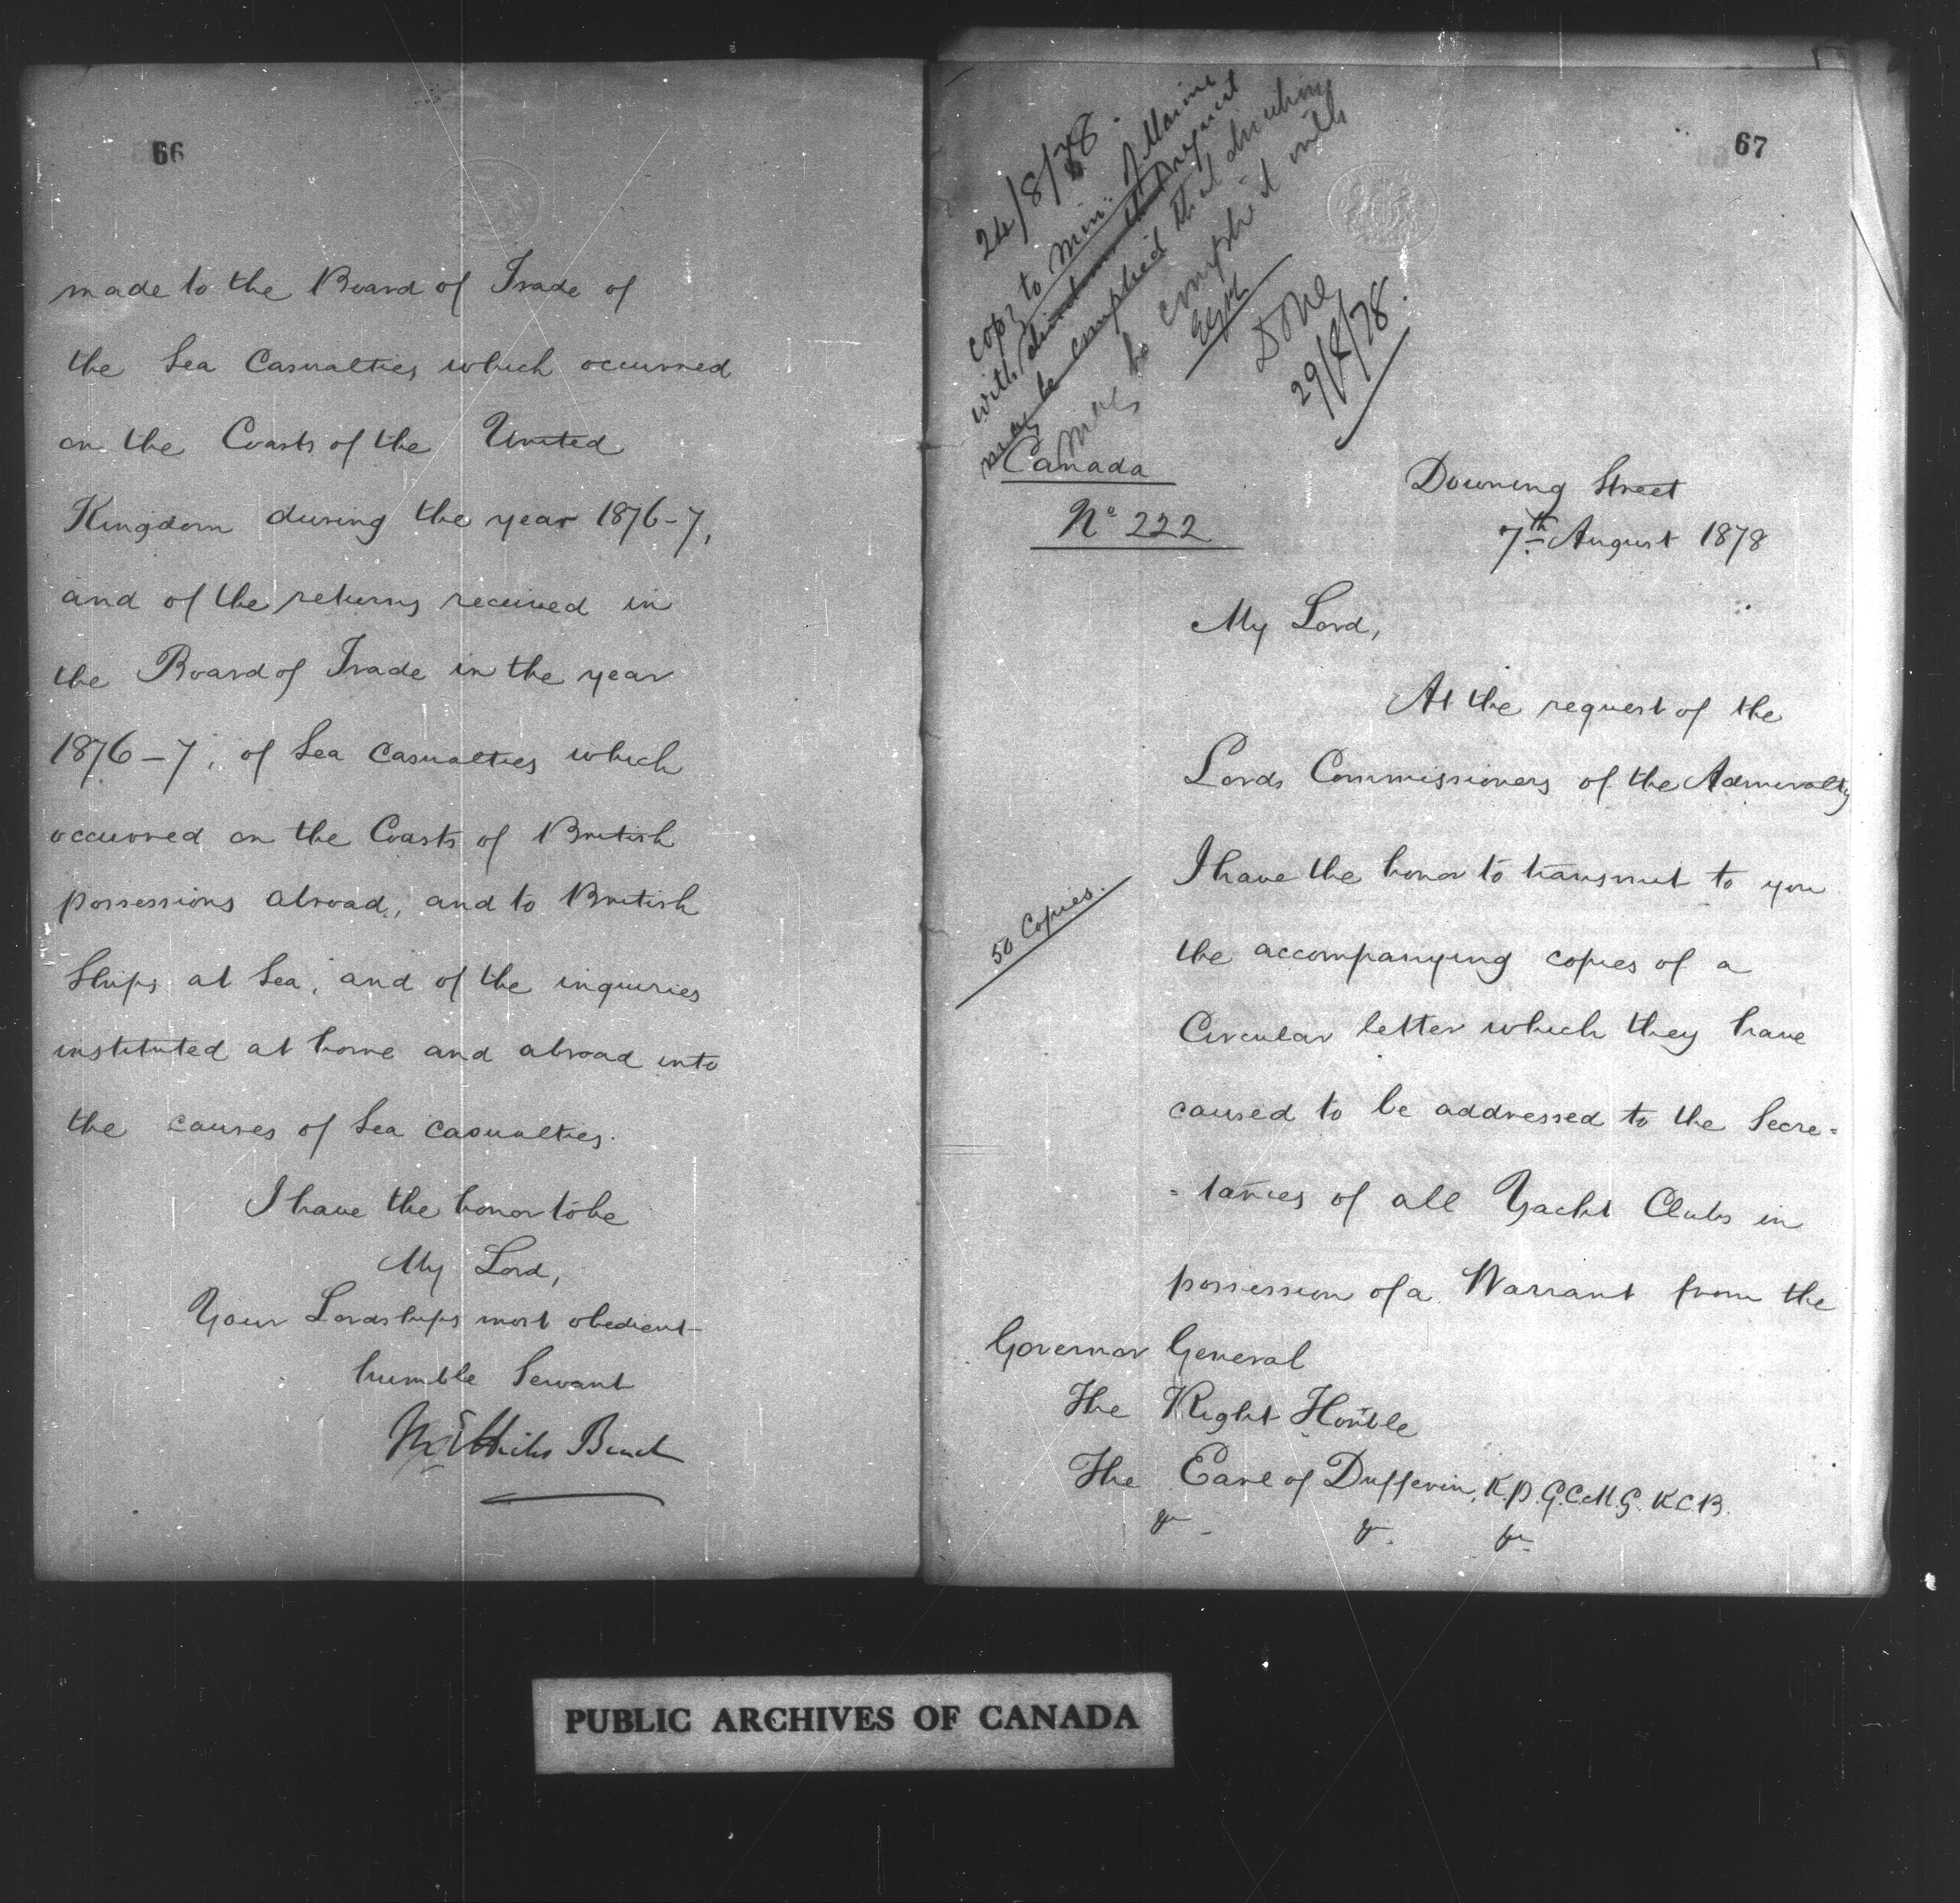 66
made to the Board of Trade of
the Sea Casualties which occurred
on the Coasts of the United
Kingdom during the year 1876-7,
and of the returns received in
the Board of Trade in the year
1876-7, of Sea Casualties which
occurred on the Coasts of British
possessions abroad, and to British
Ships at Sea, and of the inquiries
instituted at home and abroad into
the causes of Sea casualties.
I have the honor to be
My Lord,
Your Lordships most obedient
humble Servant
M E Hicks Beach
67
24/8/78.
copy to Min: of Marine
with request
may be complied that directing
be complied with
Done
29/8/78.
Canada
No 222
Downing Street
7th August 1878
My Lord,
At the request of the
Lords Commissioners of the Admiralty
I have the honor to transmit to you
50 Copies.
the accompanying copies of a
Circular letter which they have
caused to be addressed to the Secre=
=taries of all Yacht Clubs in
possession of a Warrant from the
Governor General
The Right Honble
The Earl of Dufferin, K.P. G.C.M.G. K.C.B.
&c &c &c
PUBLIC ARCHIVES OF CANADA